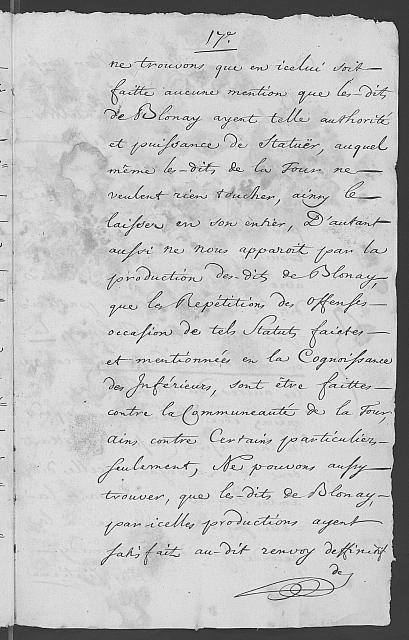 17.e
ne trouvons que en icelui soit
faitte aucune mention que les-dits
de Blonay ayent telle authorité
et puissance de Statuër, auquel
même les-dits de la Tour ne
veulent rien toucher, ainsy le
laisser en son entier, D'autant
aussi ne nous apparoit par la
production des-dits de Blonay,
que les Repétitions des offenses
occasion de tels Statuts faictes
et mentionnées en la Cognoissance
des Inférieurs, sont être faittes
contre la Communeauté de la Tour,
ains contre Certains particuliers
seulement, Ne pouvons aussy
trouver, que les-dits de Blonay,
par icelles productions ayent
satisfait au-dit renvoy deffinitif
de